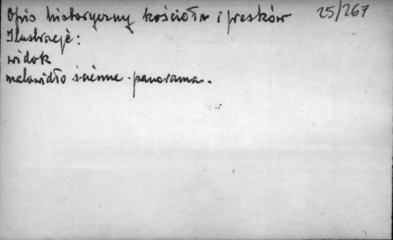 Opis historyczny kościoła i fresków 25/267
Ilustracje:
widok
malowidło ścienne - panorama.